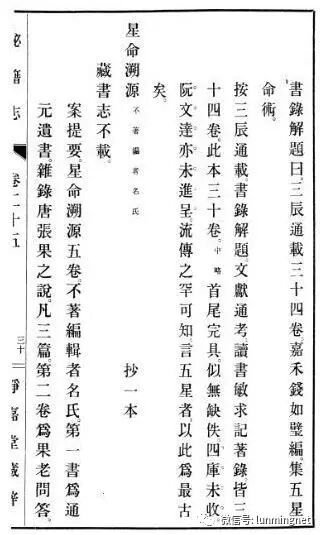 書錄解題曰三辰通載三十四卷嘉禾錢如璧編集五星
命術。
按三辰通載書錄解題文獻通考讀書敏求記著錄皆三
十四卷此本三十卷。中略 首尾完具。似無缺佚四庫未收
阮文達亦未進呈。流傳之罕可知。言五星者以此為最古
矣。
星命溯源 不著編者名氏 抄一本
藏書志不載。
案提要。星命溯源五卷。不著編輯者名氏。第一書爲通
元遺書。雜錄唐張果之說。凡三篇。第二卷爲果老問答。
祕籍志 卷二十五 三十 靜嘉堂藏
微信号: lunmingnet